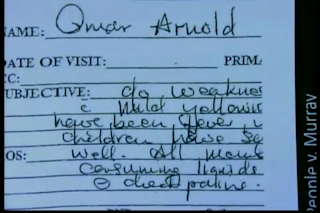 NAME: Omar Arnold
DATE OF VISIT: PRIMA
CC:
SUBJECTIVE: c/o weaknes
c mild yellowis
have been fever
children have se
OS: well. All
consuming liquids
People v. Murray